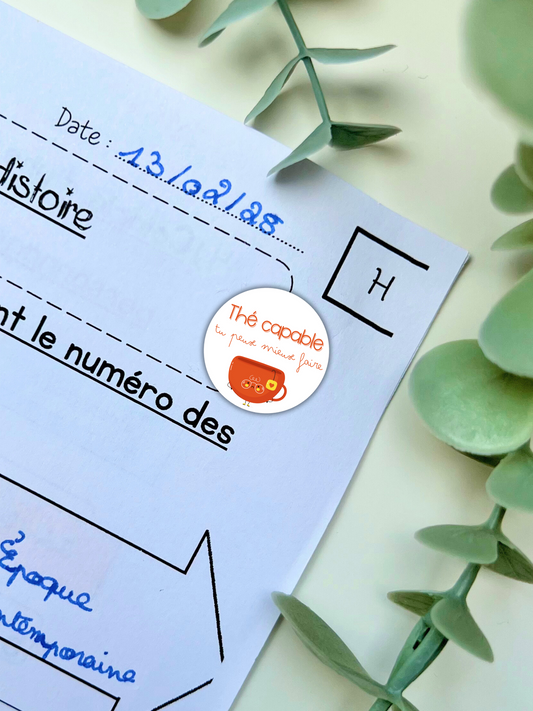 Date : 13/02/28
Histoire
H
Thé capable
tu peux mieux faire
nt le numéro des
Époque
ntemporaine